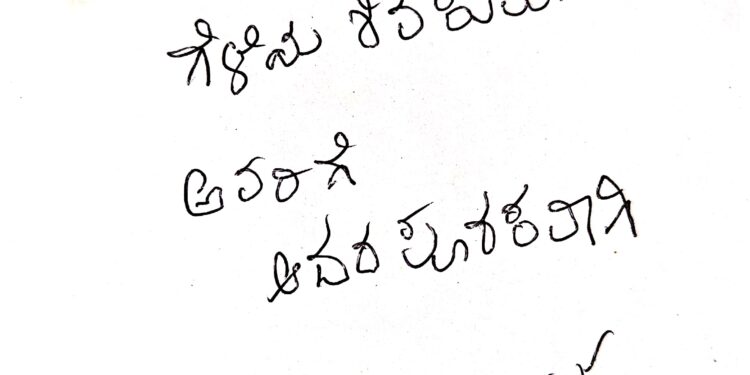 ಗೆಳೆಯ
ಅವರಿಗೆ
ಆದರ ಪೂರಕವಾಗಿ